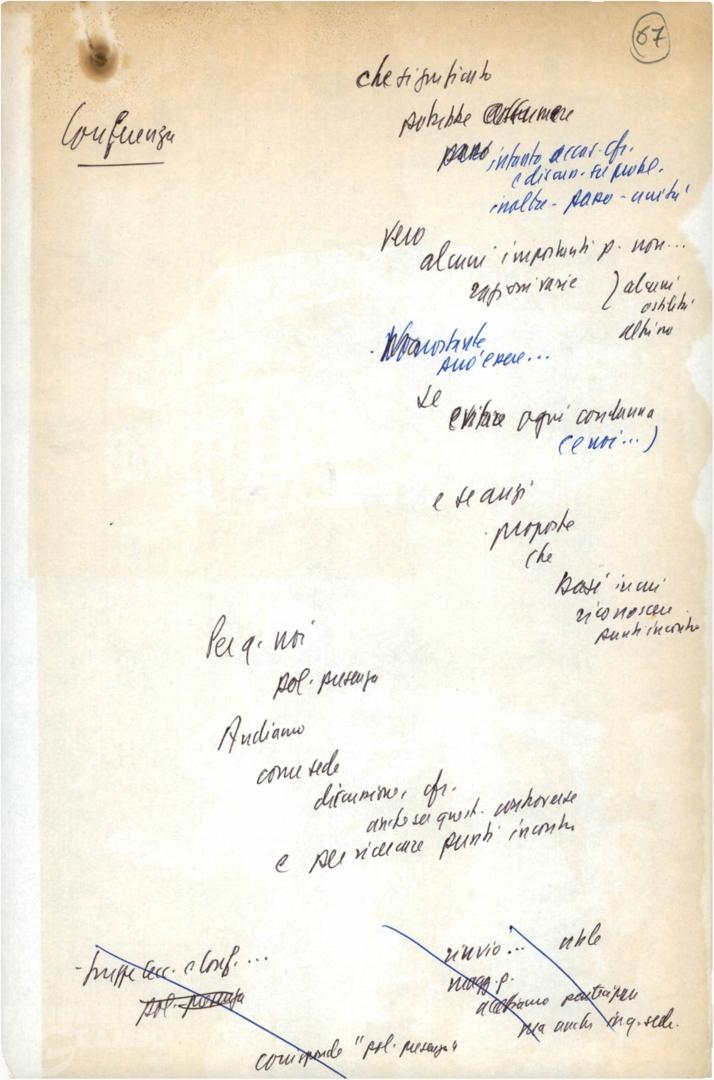 67
Conferenza
che significato
potrebbe assumere
intanto occas. cfr.
e discus. su probl.
inoltre - passo - unità
vero
alcuni importanti p. non...
ragioni varie
alcuni
ostilità
altri no
Nonostante
può essere...
se
evitare ogni condanna
(e noi...)
e se anzi
proposte
che
basi in cui
riconoscere
punti incontro
Per q. noi
pol. presenza
Andiamo
come sede
discussione, cfr.
anche su quest. controverse
e per ricercare punti incontro
conf. ...
pol. presenza
corrisponde "pol. presenza"
rinvio... utile
magg. p.
partecipare
ma anche in q. sede.